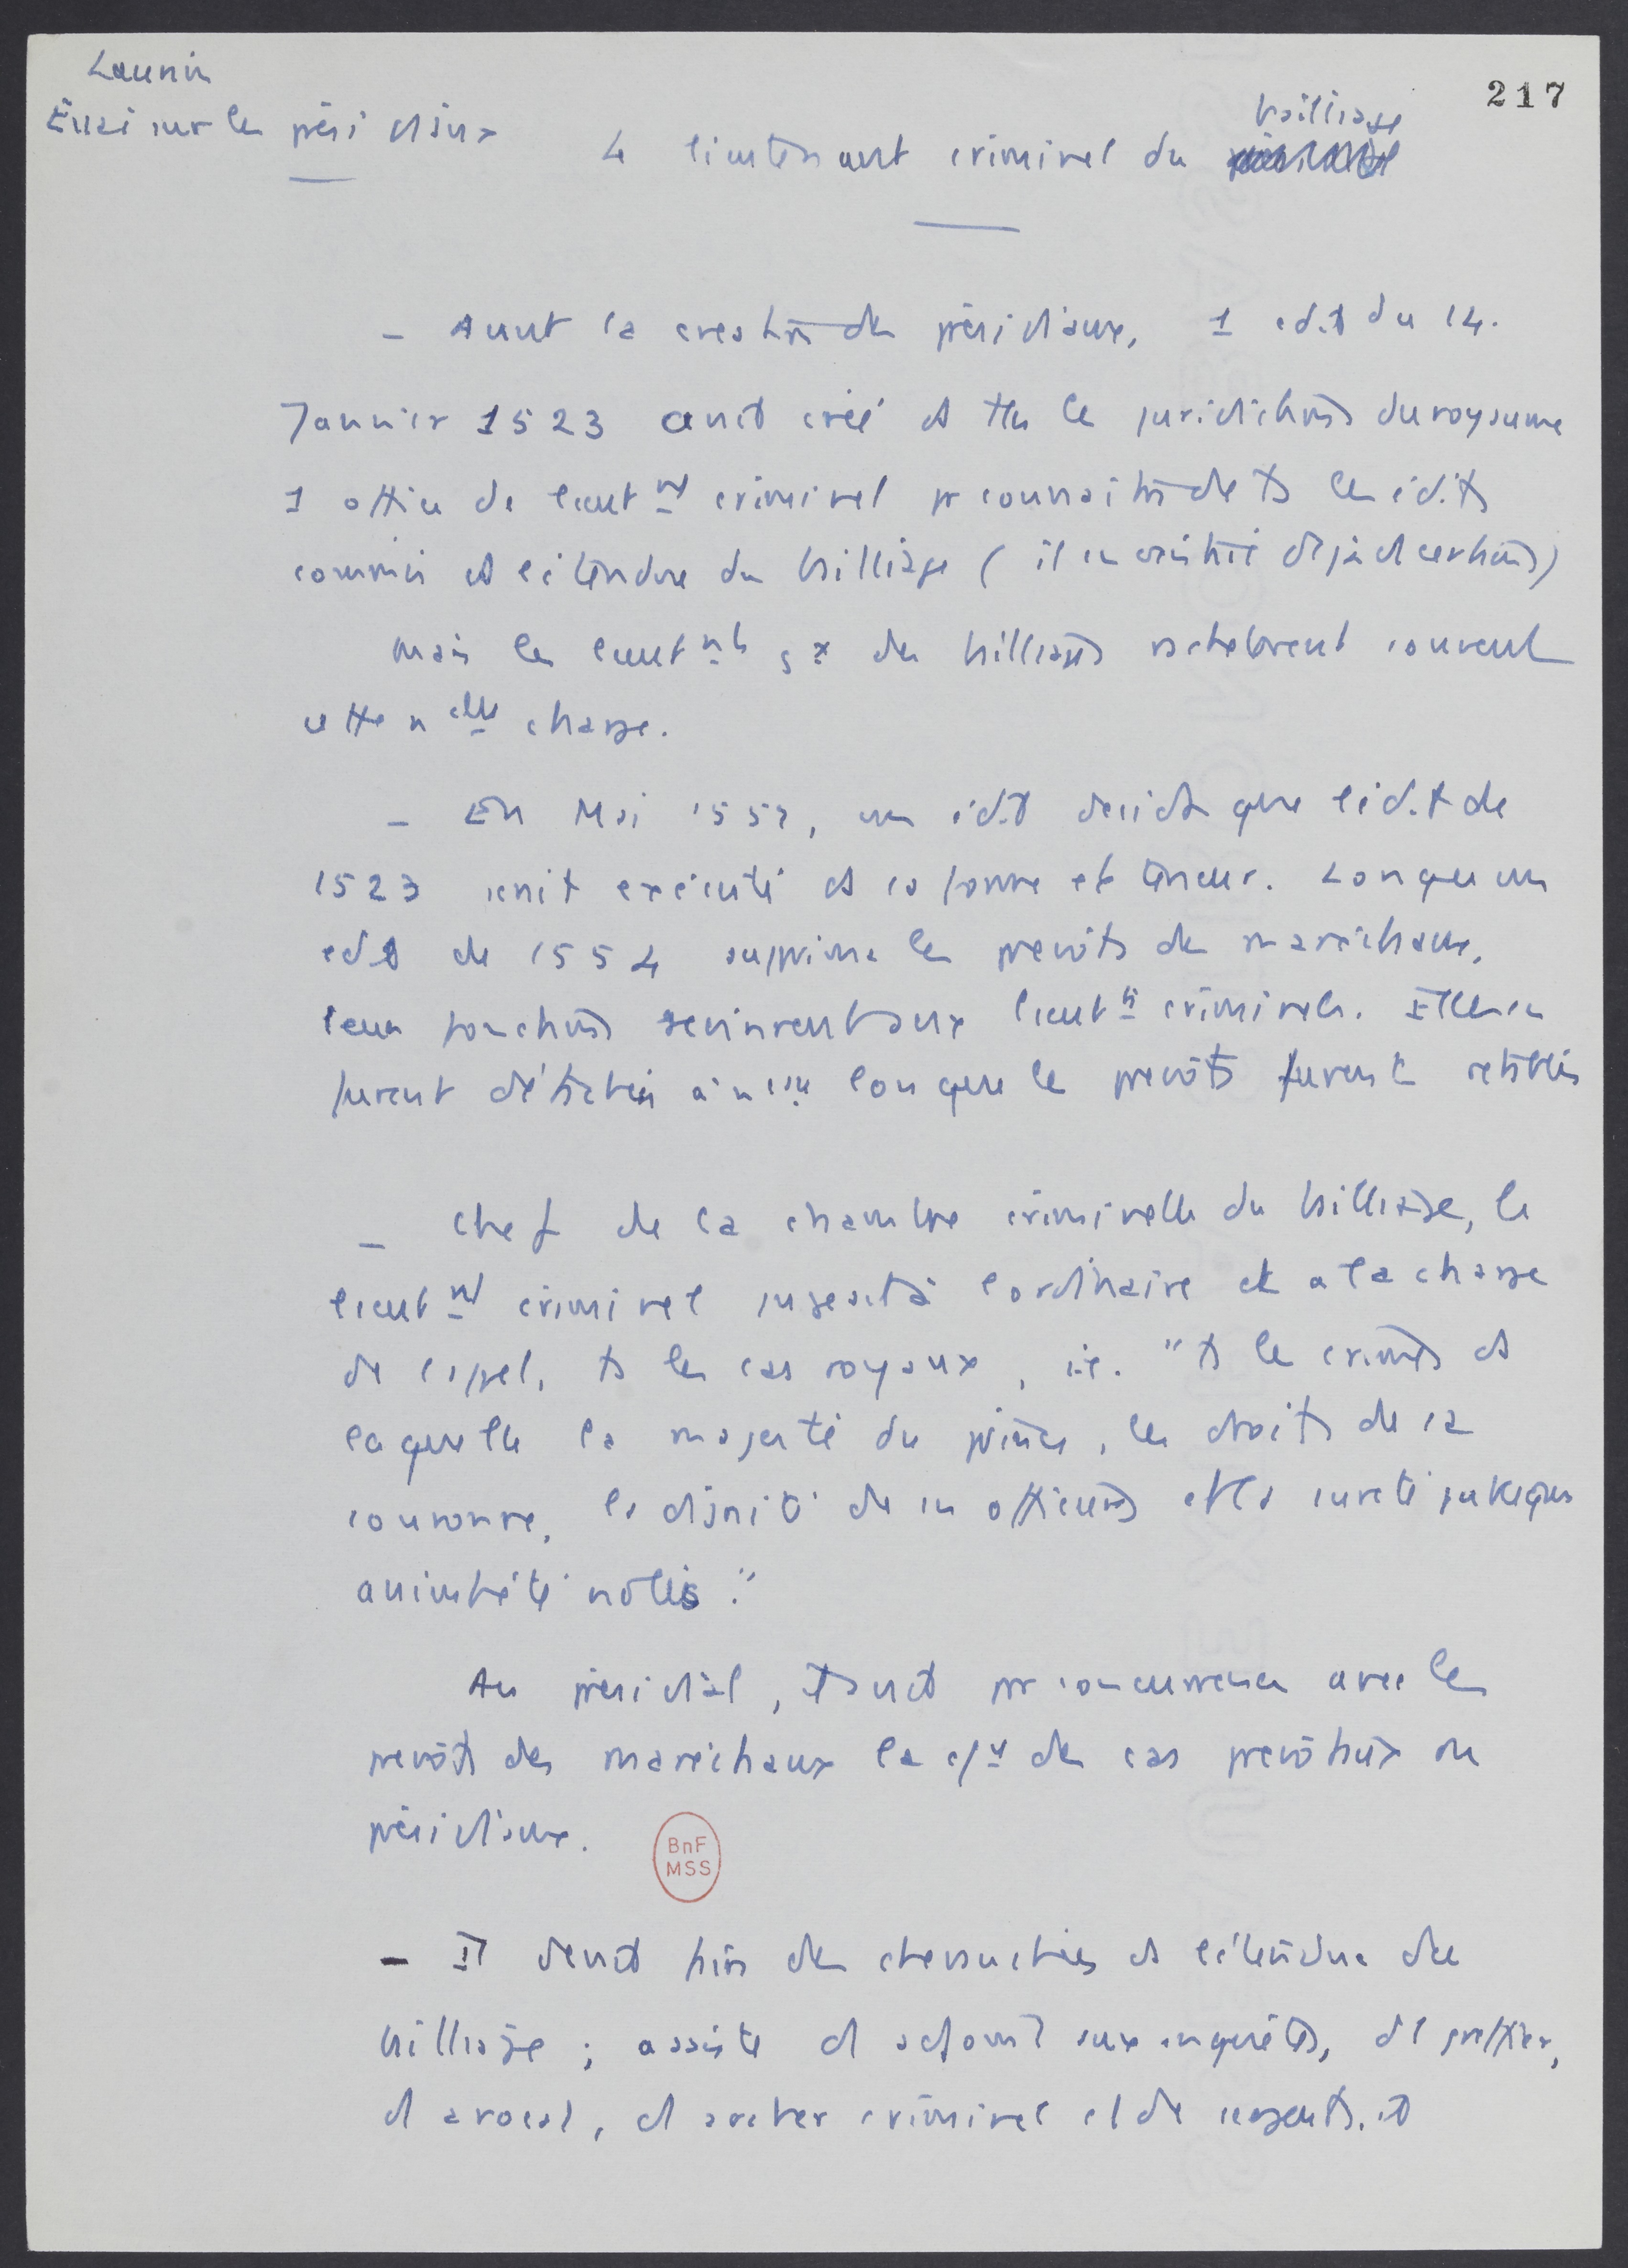 Launin
217
Essai sur les présidiaux
bailliage
Le lieutenant criminel du
- Avant la création des présidiaux, 1 edit du 14.
Janvier 1523 avait créé ds ttes les juridictions du royaume
1 office de lieut nt criminel pr connaître de ts les édits
commis ds l'étendue du bailliage ( il en existait déjà ds certains)
mais les lieut nts gx des bailliages rachetèrent souvent
cette n elle charge.
- En Mai 1552, un édit décida que l'édit de
1523 serait exécuté ds sa forme et teneur. Lorsqu'un
edit de 1554 supprima les prévôts des maréchaux,
leurs fonctions revinrent aux lieut ts criminels. Elles en
furent détachées à n lorsque les prévôts furent rétablis
- Chef de la chambre criminelle du bailliage, le
lieut nt criminel jugeait à l'ordinaire et à la charge
de l'appel, ts les cas royaux, i.e. "ts les crimes ds
laquelle la majesté du prince, les droits de la
couronne, la dignité de ses officiers et la sureté publique
ont été violés."
Au présidial, avait pr concurrence avec les
prévôts des maréchaux la des cas prévôtaux ou
présidiaux.
BnF
MSS
- Il devait faire des chevauchées ds l'étendue du
bailliage ; assisté d'adjoints aux enquêtes, d'1 greffier,
d'1 avocat, d'1 archer criminel et de sergents.